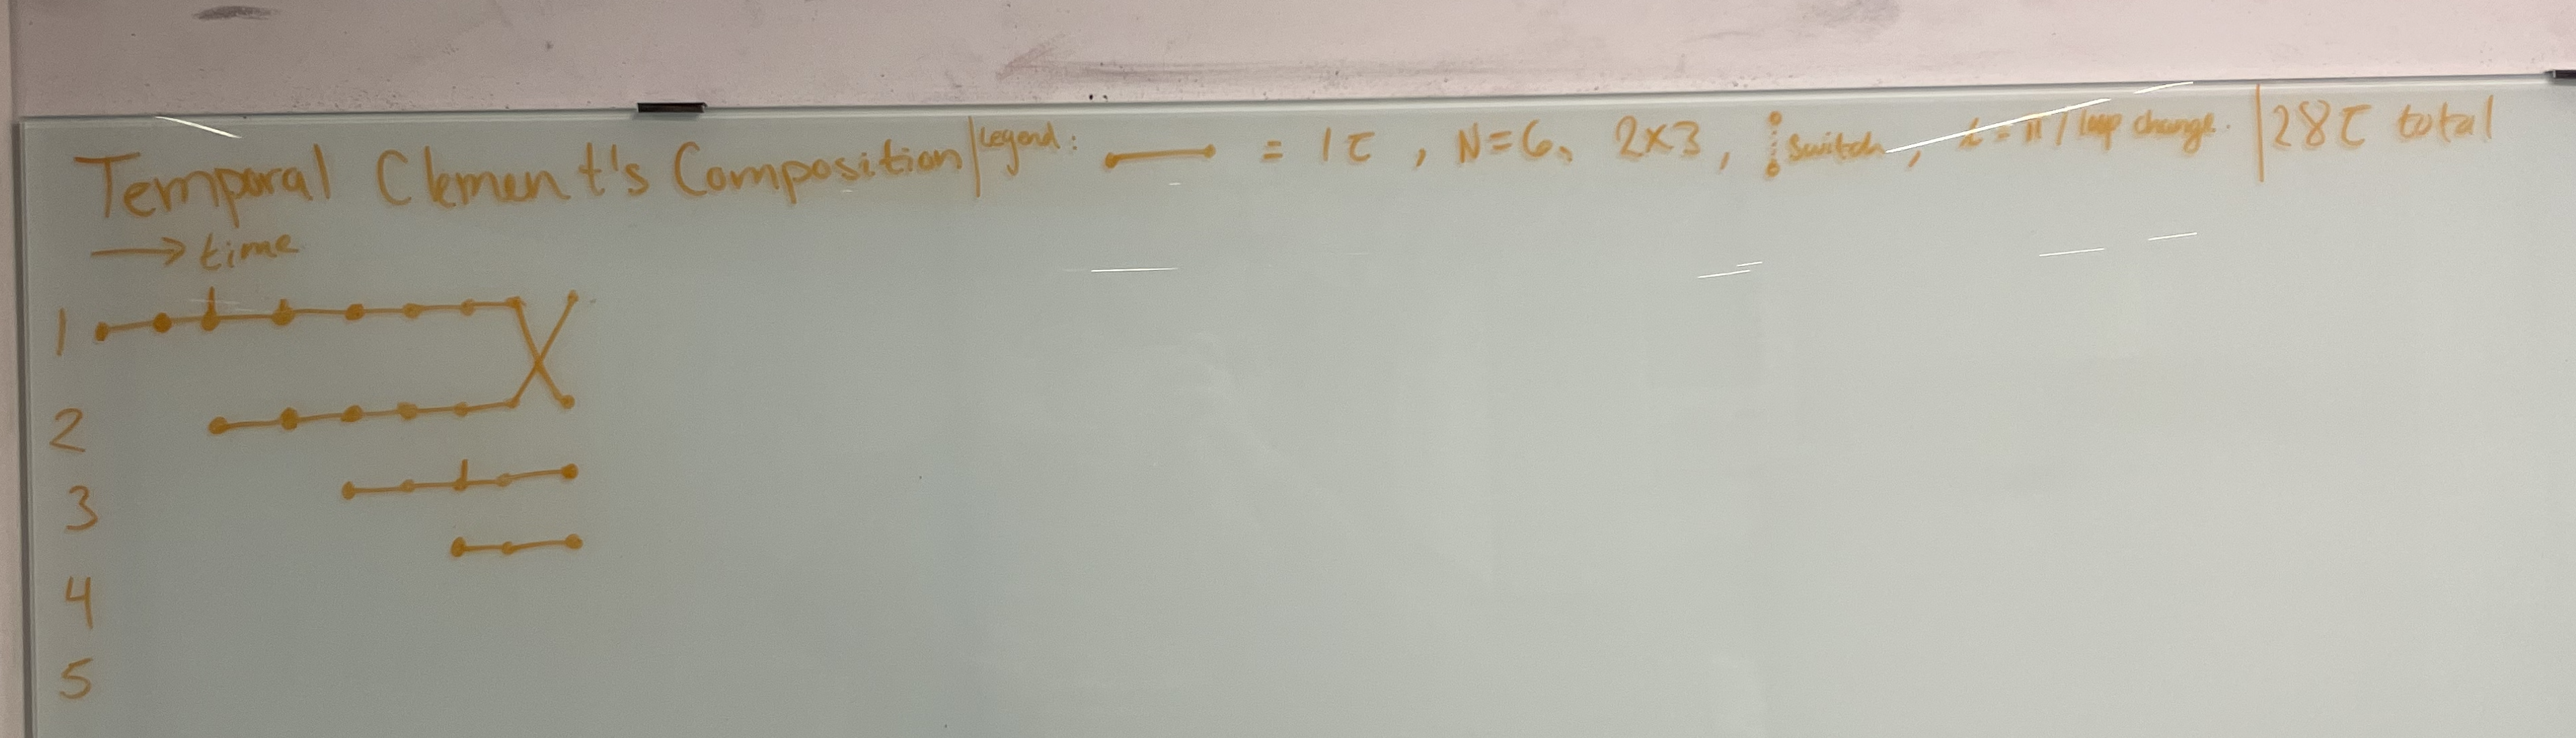 Temporal Clement's Composition | Legend: = 1τ , N=6, 2x3, switch, = π / loop change. | 28τ total
→ time
1
2
3
4
5